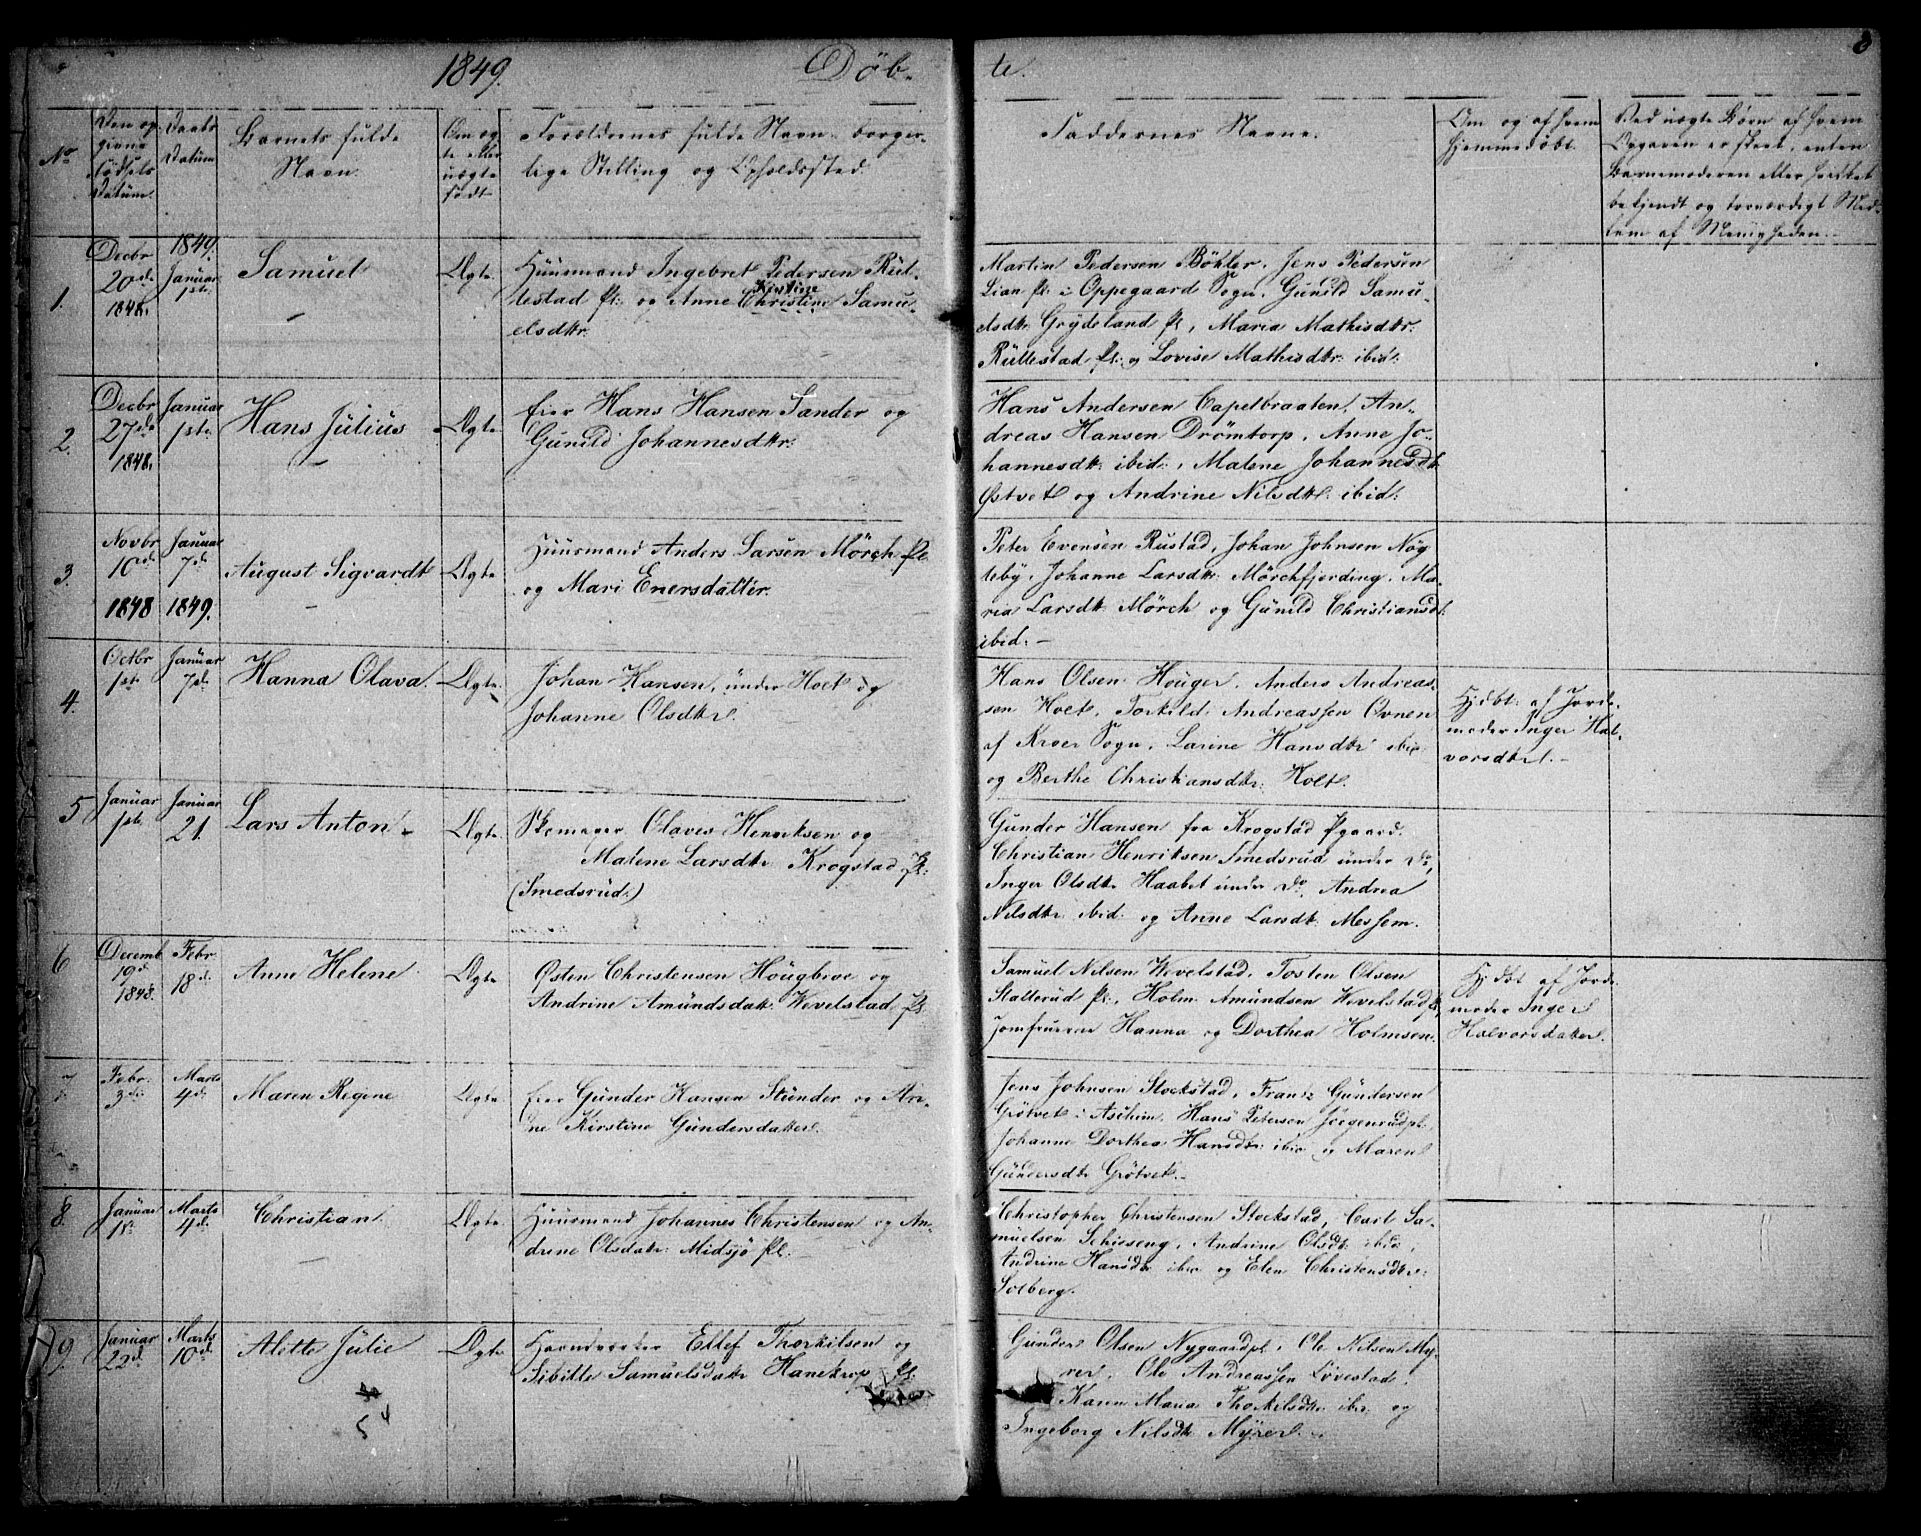 1849. Døb-
te.
8
No
Den op-
givne
Fødsels
Datum.
Daabs
Datum
Barnets fulde
Navn.
Om æg-
te eller
uægte
født
Forældrenes fulde Navn, borger-
lige Stilling og Opholdssted.
Faddernes Navne.
Om og af hvem
hjemmedøbt.
Ved uægte Børn af hvem
Opgaven er skeet, enten
Barnemoderen eller hvilket
bekjendt og troværdigt Med-
lem af Menigheden.
1.
Decbr
20de
1848.
1849.
Januar
1ste
Samuel
Ægte
Huusmand Ingebret Pedersen Rul-
Kistine
lestad pl: og Anne Christine Samu-
elsdtr.
Martin Pedersen Bøhler, Jens Pedersen
Lian pl: i Oppegaard Sogn, Gunild Samu-
elsdtr Grydeland pl, Maria Mathisdtr:
Rullestad pl: og Lovise Mathisdtr: ibid:
2.
Decbr
27de
1848.
Januar
1ste
Hans Julius
Ægte
Eier Hans Hansen Sander og
Gunild Johannesdtr:
Hans Andersen Capelbraaten, An-
dreas Hansen Drømtorp, Anne Jo-
hannesdtr: ibid:, Malene Johannesdtr
Østvet og Andrine Nilsdtr: ibid:
3.
Novbr
10de
1848
Januar
7de
1849.
August Sigvardt
Ægte
Huusmand Anders Larsen Mörch pl
og Mari Enersdatter.
Peter Evensen Rustad, Johan Johnsen Nøg-
leby, Johanne Larsdtr: Mörchfjerding, Ma-
rea Larsdtr Mörch og Gunild Christiansdtr:
ibid:-
4.
Octbr
1ste
Januar
7de
Hanna Olava.
Ægte.
Johan Hansen, under Holt og
Johanne Olsdtr.
Hans Olsen Houger, Anders Andreas-
sen Holt, Torkild Andreassen Ovnen
af Kroer Sogn, Larine Hansdtr ibid
og Berthe Christiansdtr: Holt.
Hjdbt: af Jorde-
moder Inger Hal-
vorsdtr.-
5
Januar
1ste
Januar
21.
Lars Anton-
Ægte.
Skomager Olaves Henriksen og
Malene Larsdtr Krogstad pl:
(Smedsrud.)
Gunder Hansen fra Krogstad Pgaard.
Christian Henriksen Smedsrud under Do,
Inger Olsdtr Haabet under Do Andrea
Nilsdtr ibid: og Anne Larsdtr: Messem.
6
Decemb
19d
1848.
Febr
18d.
Anne Helene
Ægte.
Østen Christensen Hougbroe og
Andrine Amundsdatr: Wevelstad pl.
Samuel Nilsen Wevelstad, Tosten Olsen
Stallerud pl:, Holm Amundsen Wevelstad pl,
Jomfruerne Hanna og Dorthea Holmsen.
Hjdøbt af Jorde-
moder Inger
Halvorsdatter.
7.
Febr:
3de
Marts
4d.
Maren Regine
Ægte.
Eier Gunder Hansen Stunder og Ari-
ne Kirstine Gundersdatter.
Jens Johnsen Stockstad, Frantz Gundersen
Grøtvet i Aschim, Hans Petersen Jørgenrud pl.
Johanne Dorthea Hansdtr: ibid og Maren
Gundersdtr Grøtvet.-
8.
Januar
1ste
Marts
4d.
Christian
Ægte.
Huusmand Johannes Christensen og An-
drine Olsdatr: Midsjø pl:-
Christopher Christensen Stockstad, Carl Sa-
muelsen Schieseng, Andrine Olsdtr ibid,
Andrine Hansdtr ibid og Elen Christensdtr:
Solberg.
9.
Januar
22d.
Marts
10d.
Alette Julie
Ægte.
Haandværker Ellef Thorkilsen og
Sibille Samuelsdatr Hanekrop pl.
Gunder Olsen Nygaard pl, Ole Nilsen My-
rer, Ole Andreassen Løvestad,
Karen Maria Thorkilsdtr: ibid og
Ingeborg Nilsdtr Myrer.-
5 4